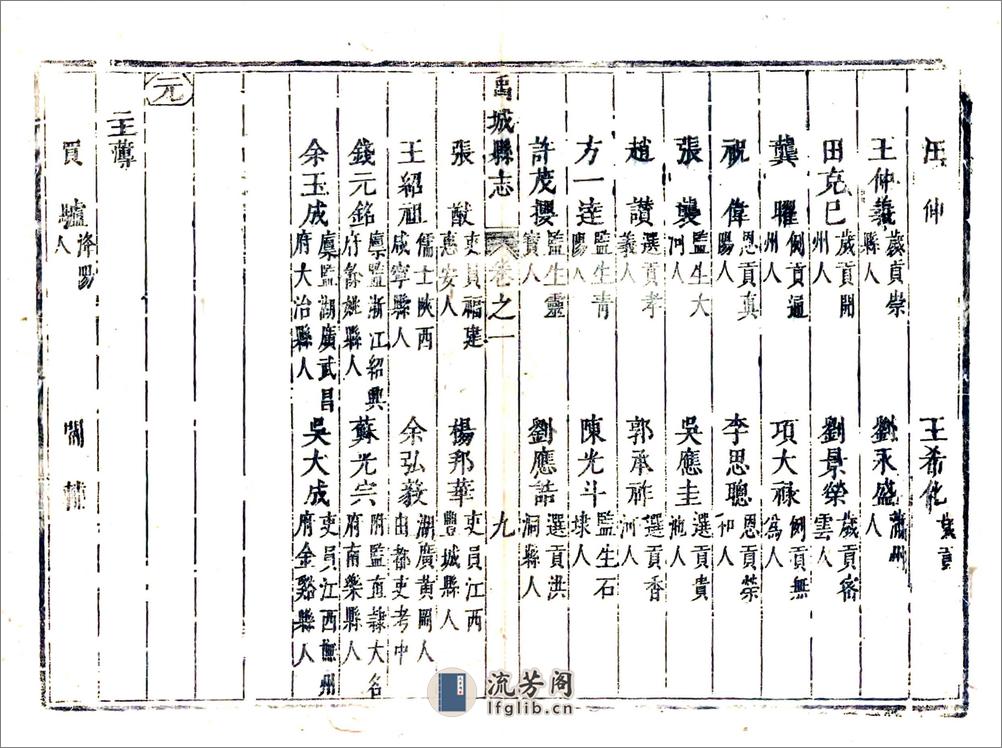 汪伸 王希化歲貢
王仲義歲貢崇縣人 劉永盛蒲州人
田克巳歲貢開州人 劉景榮歲貢密雲人
龔曜例貢通州人 項大祿例貢無為人
祝偉恩貢真陽人 李思聰恩貢榮和人
張䶮監生大河人 吳應圭選貢貴池人
趙讚選貢孝義人 郭承祚選貢香河人
方一達監生青陽人 陳光斗監生石埭人
許茂㩳監生靈寶人 劉應誥選貢洪洞縣人
禹城縣志 卷之一 九
張猷吏員福建惠安人 楊邦華吏員江西豐城縣人
王紹祖儒士陝西咸寧縣人 余弘毅湖廣黃岡人由都吏考中
錢元銘廩監浙江紹興府餘姚縣人 蘇光宗附監直隸大名府南樂縣人
余玉成廩監湖廣武昌府大冶縣人 吳大成吏員江西撫州府金谿縣人
元
主薄
賈驢洛陽人 閻
流芳阁
lfglib.cn